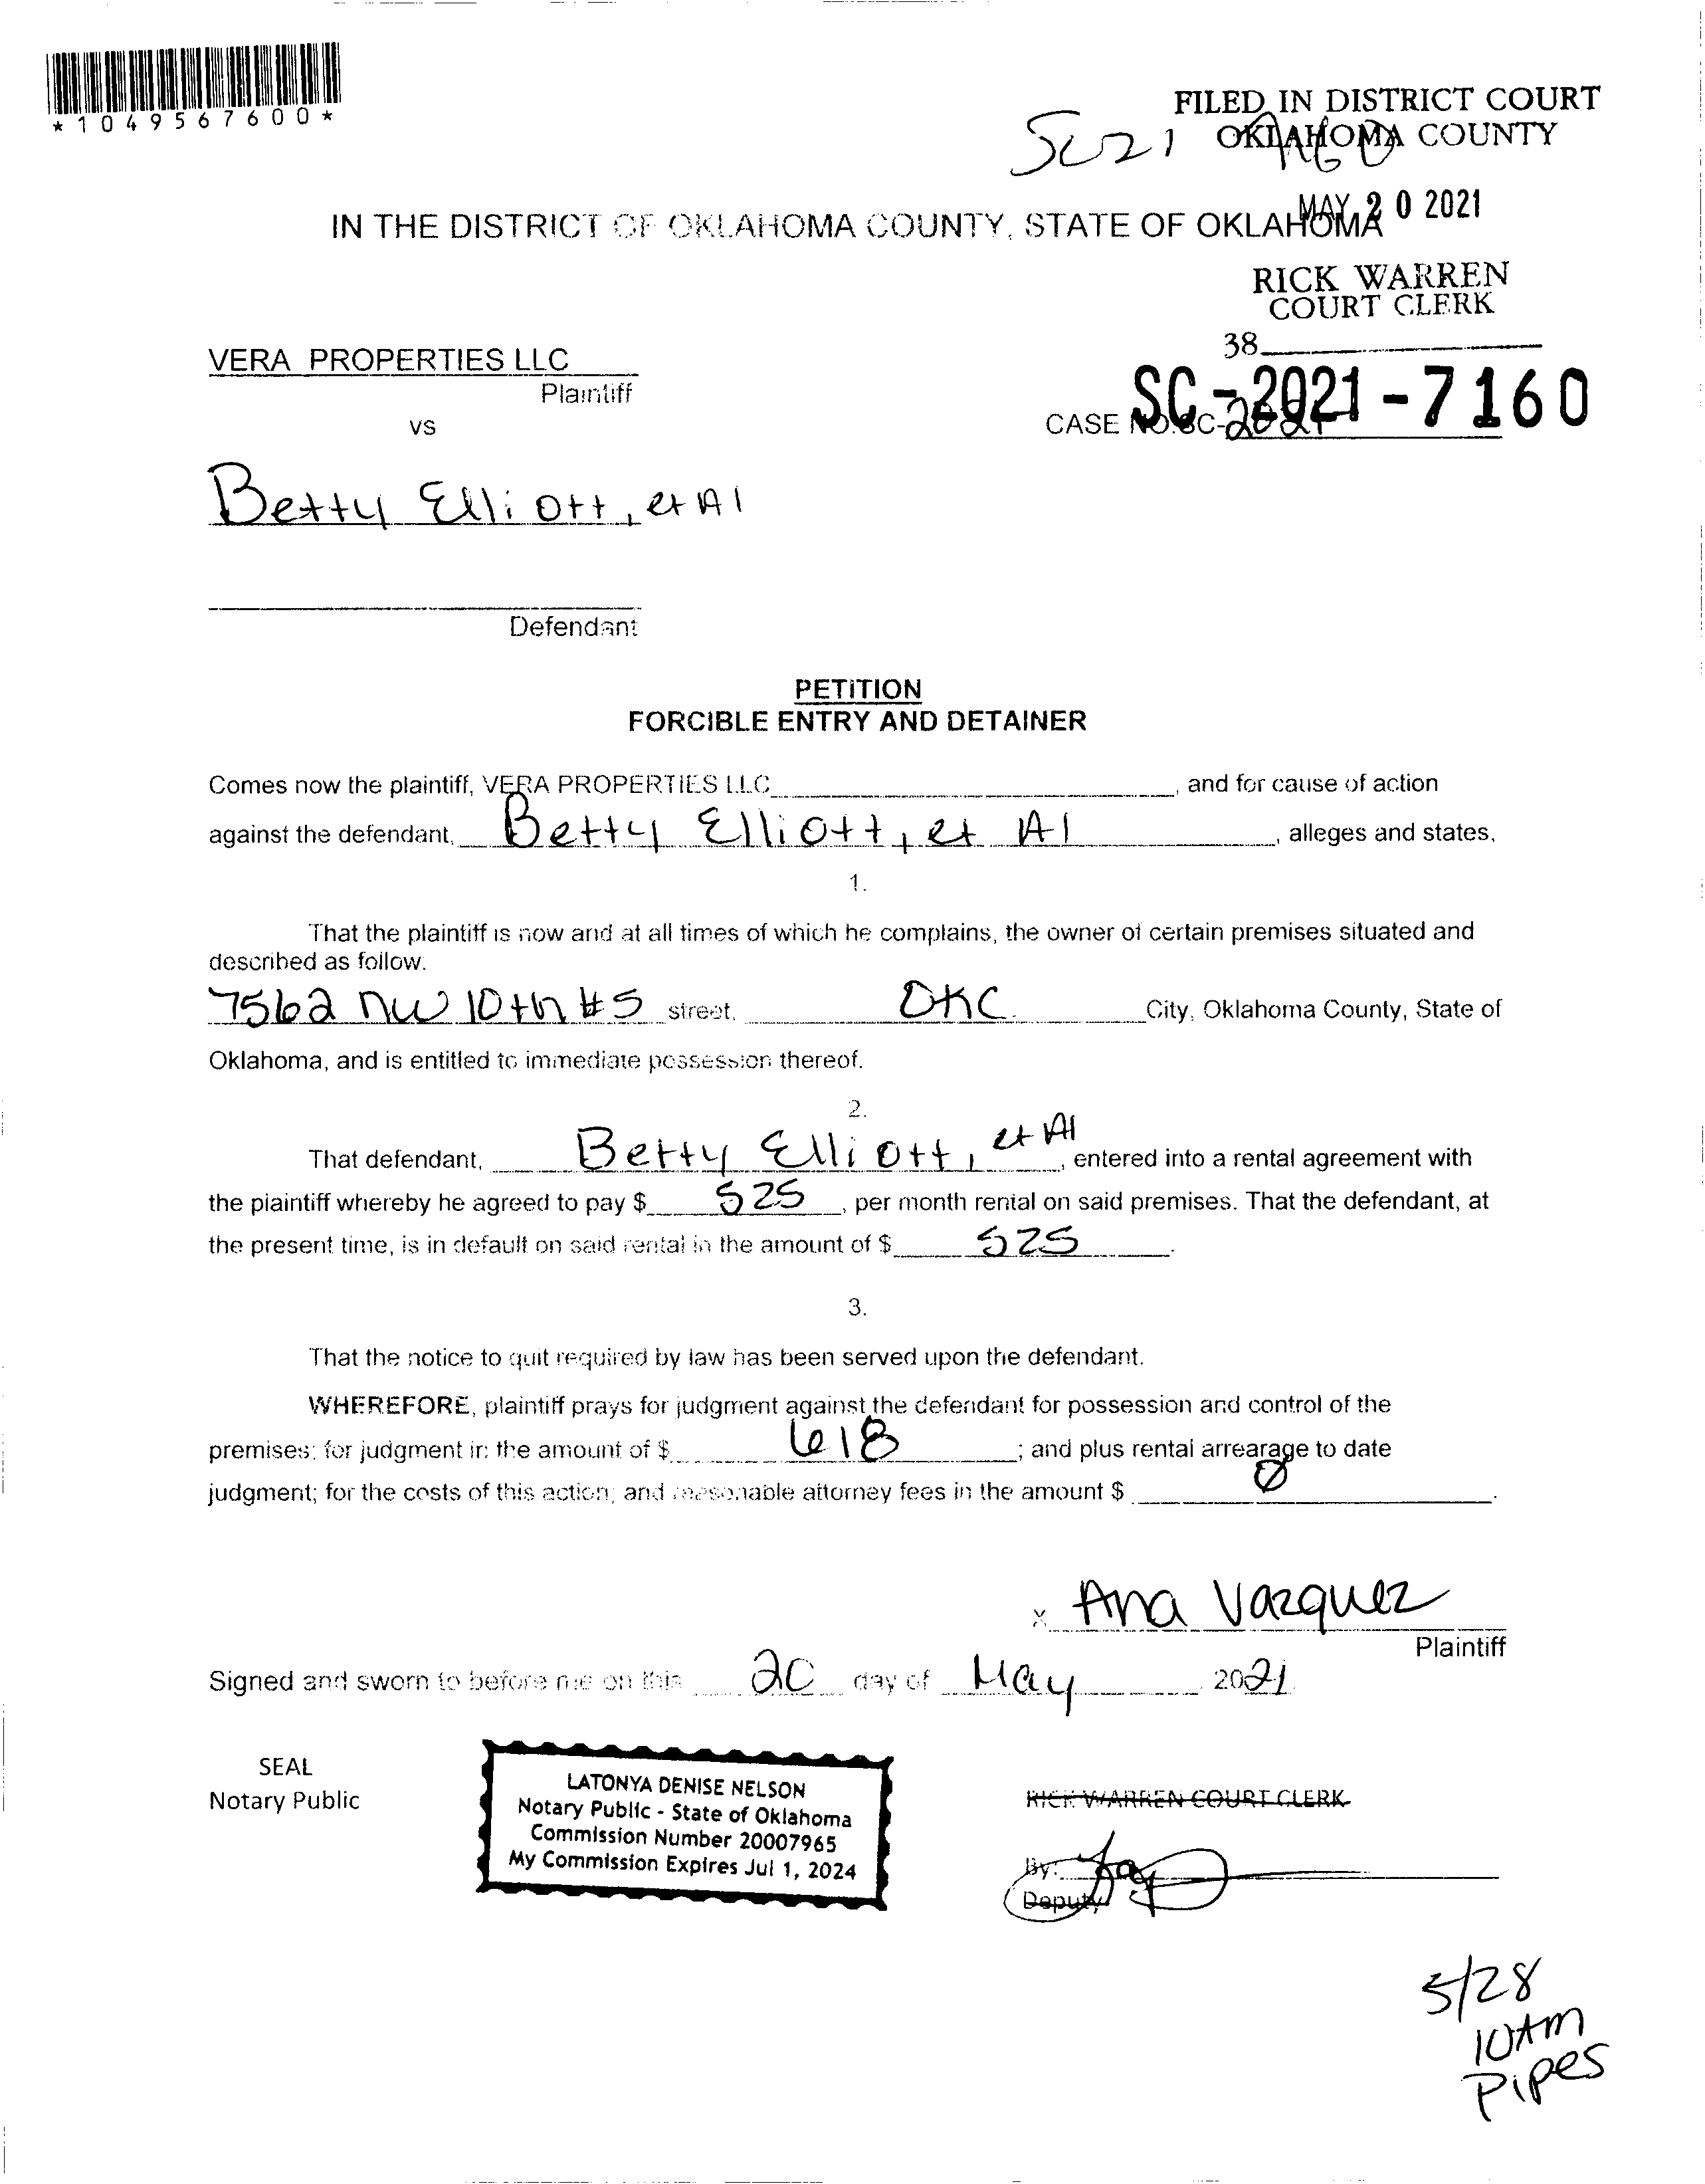 *1049567600*
FILED IN DISTRICT COURT
OKLAHOMA COUNTY
SC21
MAY 20 2021
IN THE DISTRICT OF OKLAHOMA COUNTY, STATE OF OKLAHOMA
RICK WARREN
COURT CLERK
38
VERA PROPERTIES LLC
Plaintiff
vs
CASE NO. SC-2021
SC-2021-7160
Betty Elliott, et Al
Defendant
PETITION
FORCIBLE ENTRY AND DETAINER
Comes now the plaintiff, VERA PROPERTIES LLC, and for cause of action
against the defendant, Betty Elliott, et Al, alleges and states,
1.
That the plaintiff is now and at all times of which he complains, the owner of certain premises situated and
described as follow.
7562 NW 10th #5 street, OKC City, Oklahoma County, State of
Oklahoma, and is entitled to immediate possession thereof.
2.
That defendant, Betty Elliott, et Al, entered into a rental agreement with
the plaintiff whereby he agreed to pay $ 525, per month rental on said premises. That the defendant, at
the present time, is in default on said rental in the amount of $ 525.
3.
That the notice to quit required by law has been served upon the defendant.
WHEREFORE, plaintiff prays for judgment against the defendant for possession and control of the
premises; for judgment in the amount of $ 618; and plus rental arrearage to date
judgment; for the costs of this action; and reasonable attorney fees in the amount $ Ø.
x Ana Vazquez
Plaintiff
Signed and sworn to before me on this 20 day of May, 2021.
SEAL
Notary Public
LATONYA DENISE NELSON
Notary Public - State of Oklahoma
Commission Number 20007965
My Commission Expires Jul 1, 2024
RICK WARREN COURT CLERK
By:
Deputy
5/28
10Am
Pipes